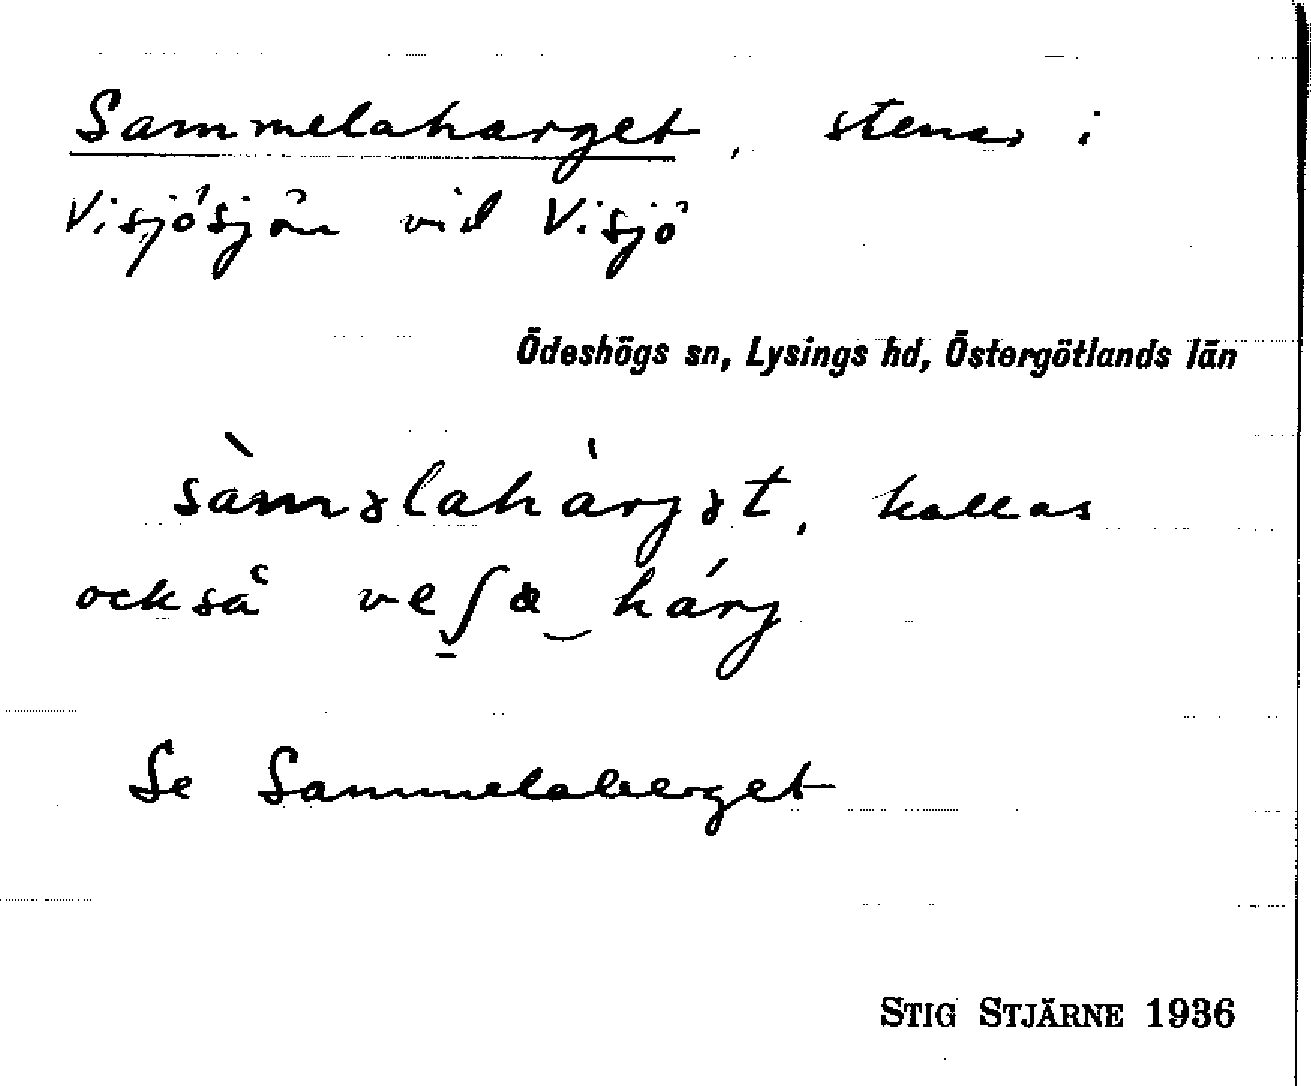 Sammelaharget, stenar i
Visjösjön vid Visjö
Ödeshögs sn, Lysings hd, Östergötlands län
sàməlahàrgət, kallas
också veʃɷ hárg
Se Sammelaberget
STIG STJÄRNE 1936